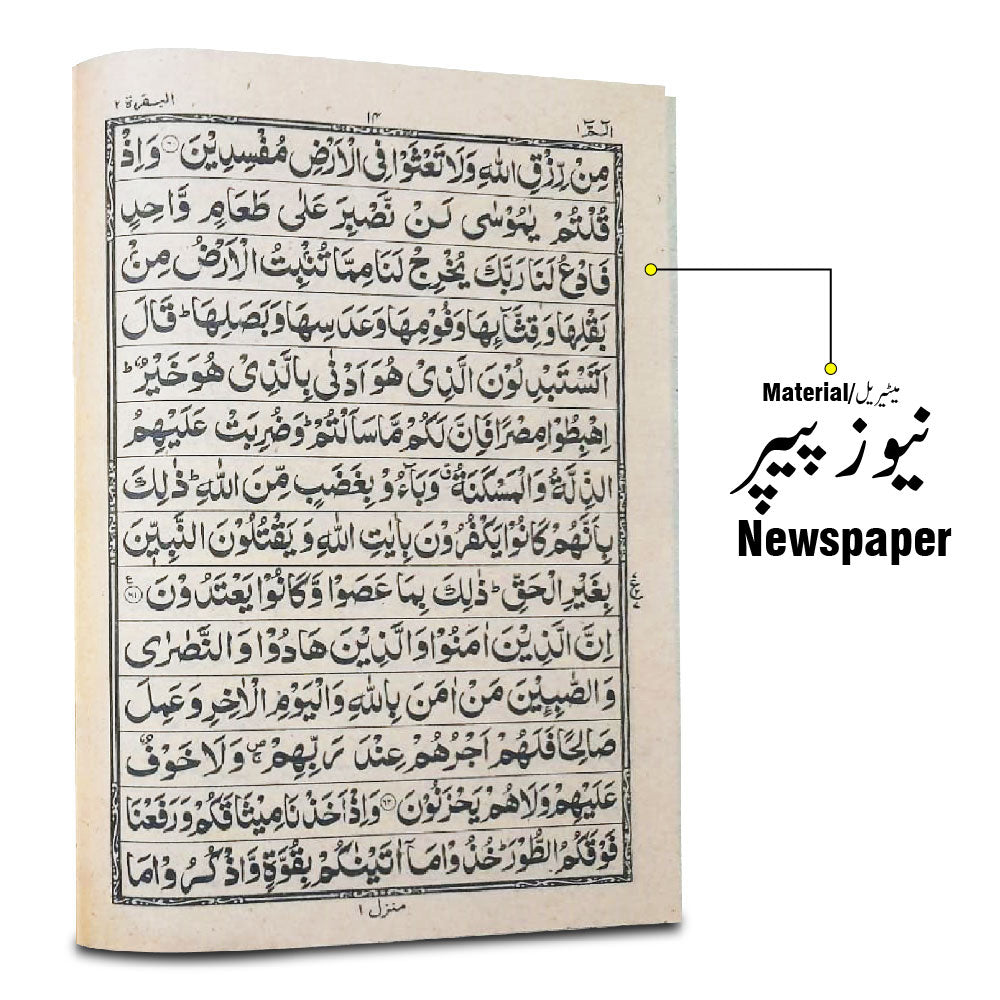 الٓـمّٓ ١
١٤
البقرة ٢
مِنْ رِّزْقِ اللّٰهِ وَلَا تَعْثَوْا فِی الْاَرْضِ مُفْسِدِیْنَ ۝۶۰ وَاِذْ
قُلْتُمْ یٰمُوْسٰی لَنْ نَّصْبِرَ عَلٰی طَعَامٍ وَّاحِدٍ
فَادْعُ لَنَا رَبَّكَ یُخْرِجْ لَنَا مِمَّا تُنْۢبِتُ الْاَرْضُ مِنْۢ
بَقْلِهَا وَقِثَّآىِٕهَا وَفُوْمِهَا وَعَدَسِهَا وَبَصَلِهَا ؕ قَالَ
اَتَسْتَبْدِلُوْنَ الَّذِیْ هُوَ اَدْنٰی بِالَّذِیْ هُوَ خَیْرٌ ؕ
اِهْبِطُوْا مِصْرًا فَاِنَّ لَكُمْ مَّا سَاَلْتُمْ ؕ وَضُرِبَتْ عَلَیْهِمُ
الذِّلَّةُ وَالْمَسْكَنَةُ ۗ وَبَآءُوْ بِغَضَبٍ مِّنَ اللّٰهِ ؕ ذٰلِكَ
بِاَنَّهُمْ كَانُوْا یَكْفُرُوْنَ بِاٰیٰتِ اللّٰهِ وَیَقْتُلُوْنَ النَّبِیّٖنَ
بِغَیْرِ الْحَقِّ ؕ ذٰلِكَ بِمَا عَصَوْا وَّكَانُوْا یَعْتَدُوْنَ ۝۶۱
اِنَّ الَّذِیْنَ اٰمَنُوْا وَالَّذِیْنَ هَادُوْا وَالنَّصٰرٰی
وَالصّٰبِـِٕیْنَ مَنْ اٰمَنَ بِاللّٰهِ وَالْیَوْمِ الْاٰخِرِ وَعَمِلَ
صَالِحًا فَلَهُمْ اَجْرُهُمْ عِنْدَ رَبِّهِمْ ۚ وَلَا خَوْفٌ
عَلَیْهِمْ وَلَا هُمْ یَحْزَنُوْنَ ۝۶۲ وَاِذْ اَخَذْنَا مِیْثَاقَكُمْ وَرَفَعْنَا
فَوْقَكُمُ الطُّوْرَ ؕ خُذُوْا مَاۤ اٰتَیْنٰكُمْ بِقُوَّةٍ وَّاذْكُرُوْا مَا
منزل ١
Material/میٹیریل
نیوز پیپر
Newspaper